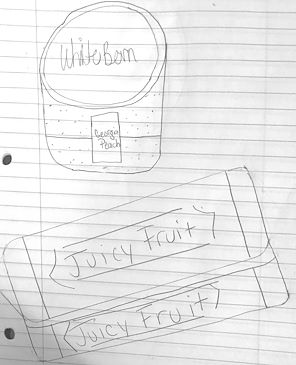 White Barn
Georgia
Peach
Juicy Fruit
Juicy Fruit